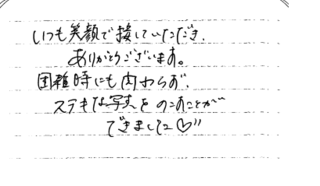 いつも笑顔で接していただき、
ありがとうございます。
困難時にも内わらず、
ステキな写真をのこすことが
できました♡〃